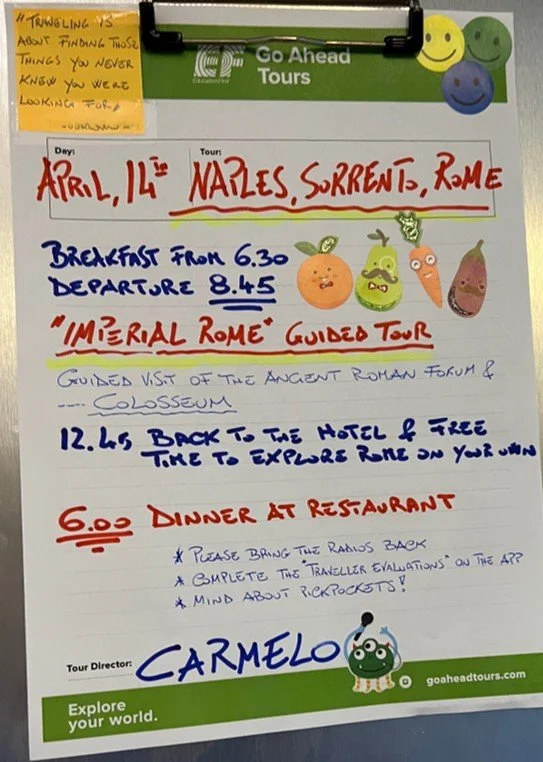 "TRAVELING IS
ABOUT FINDING THOSE
THINGS YOU NEVER
KNEW YOU WERE
LOOKING FOR"
EF
Go Ahead
Tours
Day:
Tour:
APRIL, 14TH NAPLES, SORRENTO, ROME
BREAKFAST FROM 6.30
DEPARTURE 8.45
"IMPERIAL ROME" GUIDED TOUR
GUIDED VISIT OF THE ANCIENT ROMAN FORUM &
--- COLOSSEUM
12.45 BACK TO THE HOTEL & FREE
TIME TO EXPLORE ROME ON YOUR OWN
6.00 DINNER AT RESTAURANT
* PLEASE BRING THE RADIOS BACK
* COMPLETE THE "TRAVELLER EVALUATIONS" ON THE APP
* MIND ABOUT PICKPOCKETS!
Tour Director: CARMELO
goaheadtours.com
Explore
your world.